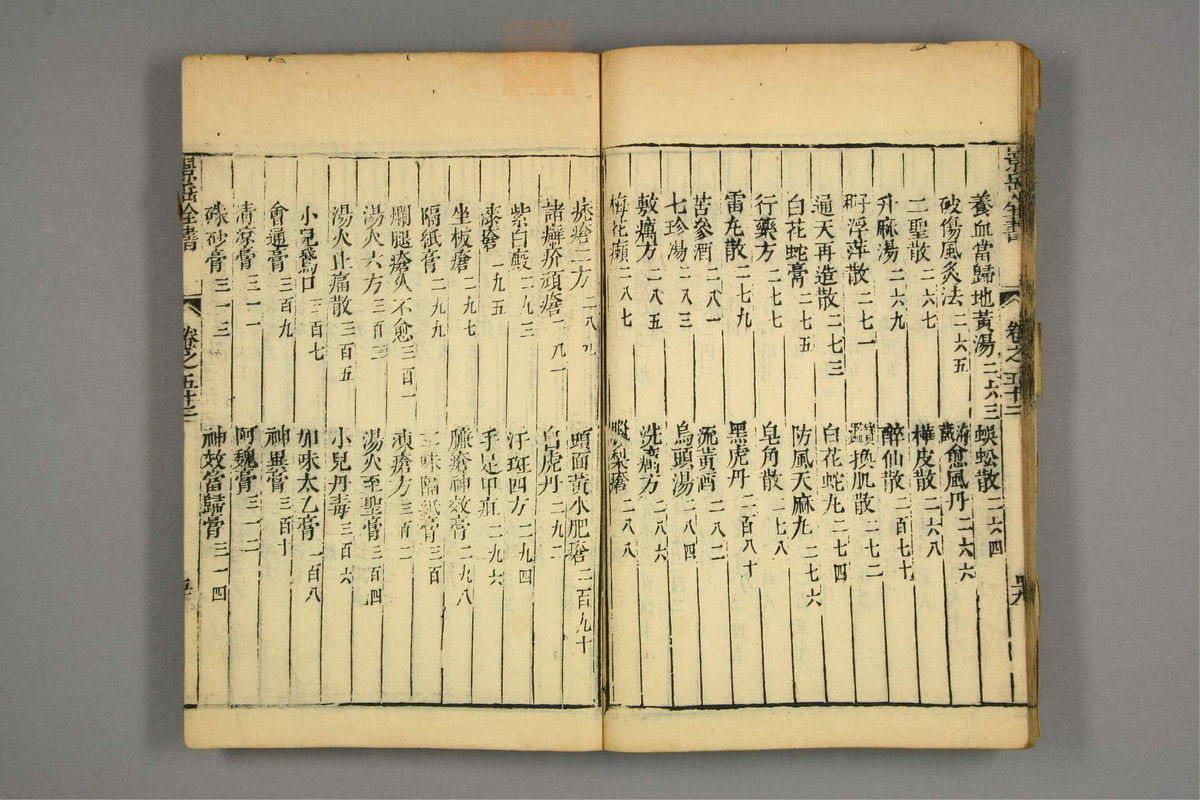 景岳全書 卷之五十二
養血當歸地黃湯二六三 蜈蚣散二六四
破傷風灸法二六五 愈風丹二六六
二聖散二六七 樺皮散二六八
升麻湯二六九 醉仙散二百七十
浮萍散二七一 換肌散二七二
通天再造散二七三 白花蛇丸二七四
白花蛇膏二七五 防風天麻丸二七六
行藥方二七七 皂角散二七八
雷丸散二七九 黑虎丹二百八十
苦參酒二八一 硫黃酒二八二
七珍湯二八三 烏頭湯二八四
敷癘方二八五 洗癘方二八六
梅花癩二八七 梨瘡二八八
二方二八九 頭面黃水肥瘡二百九十
諸癬疥頑瘡二九一 白虎丹二九二
紫白癜二九三 汗斑四方二九四
漆瘡二九五 手足甲疽二九六
坐板瘡二九七 臁瘡神效膏二九八
隔紙膏二九九 三味隔紙膏三百
爛腿瘡久不愈三百一 凍瘡方三百二
湯火六方三百三 湯火至聖膏三百四
湯火止痛散三百五 小兒丹毒三百六
小兒鵞口三百七 加味太乙膏三百八
會通膏三百九 神異膏三百十
清凉膏三一一 阿魏膏三一二
硃砂膏三一三 神效當歸膏三一四
景岳全書 卷之五十二